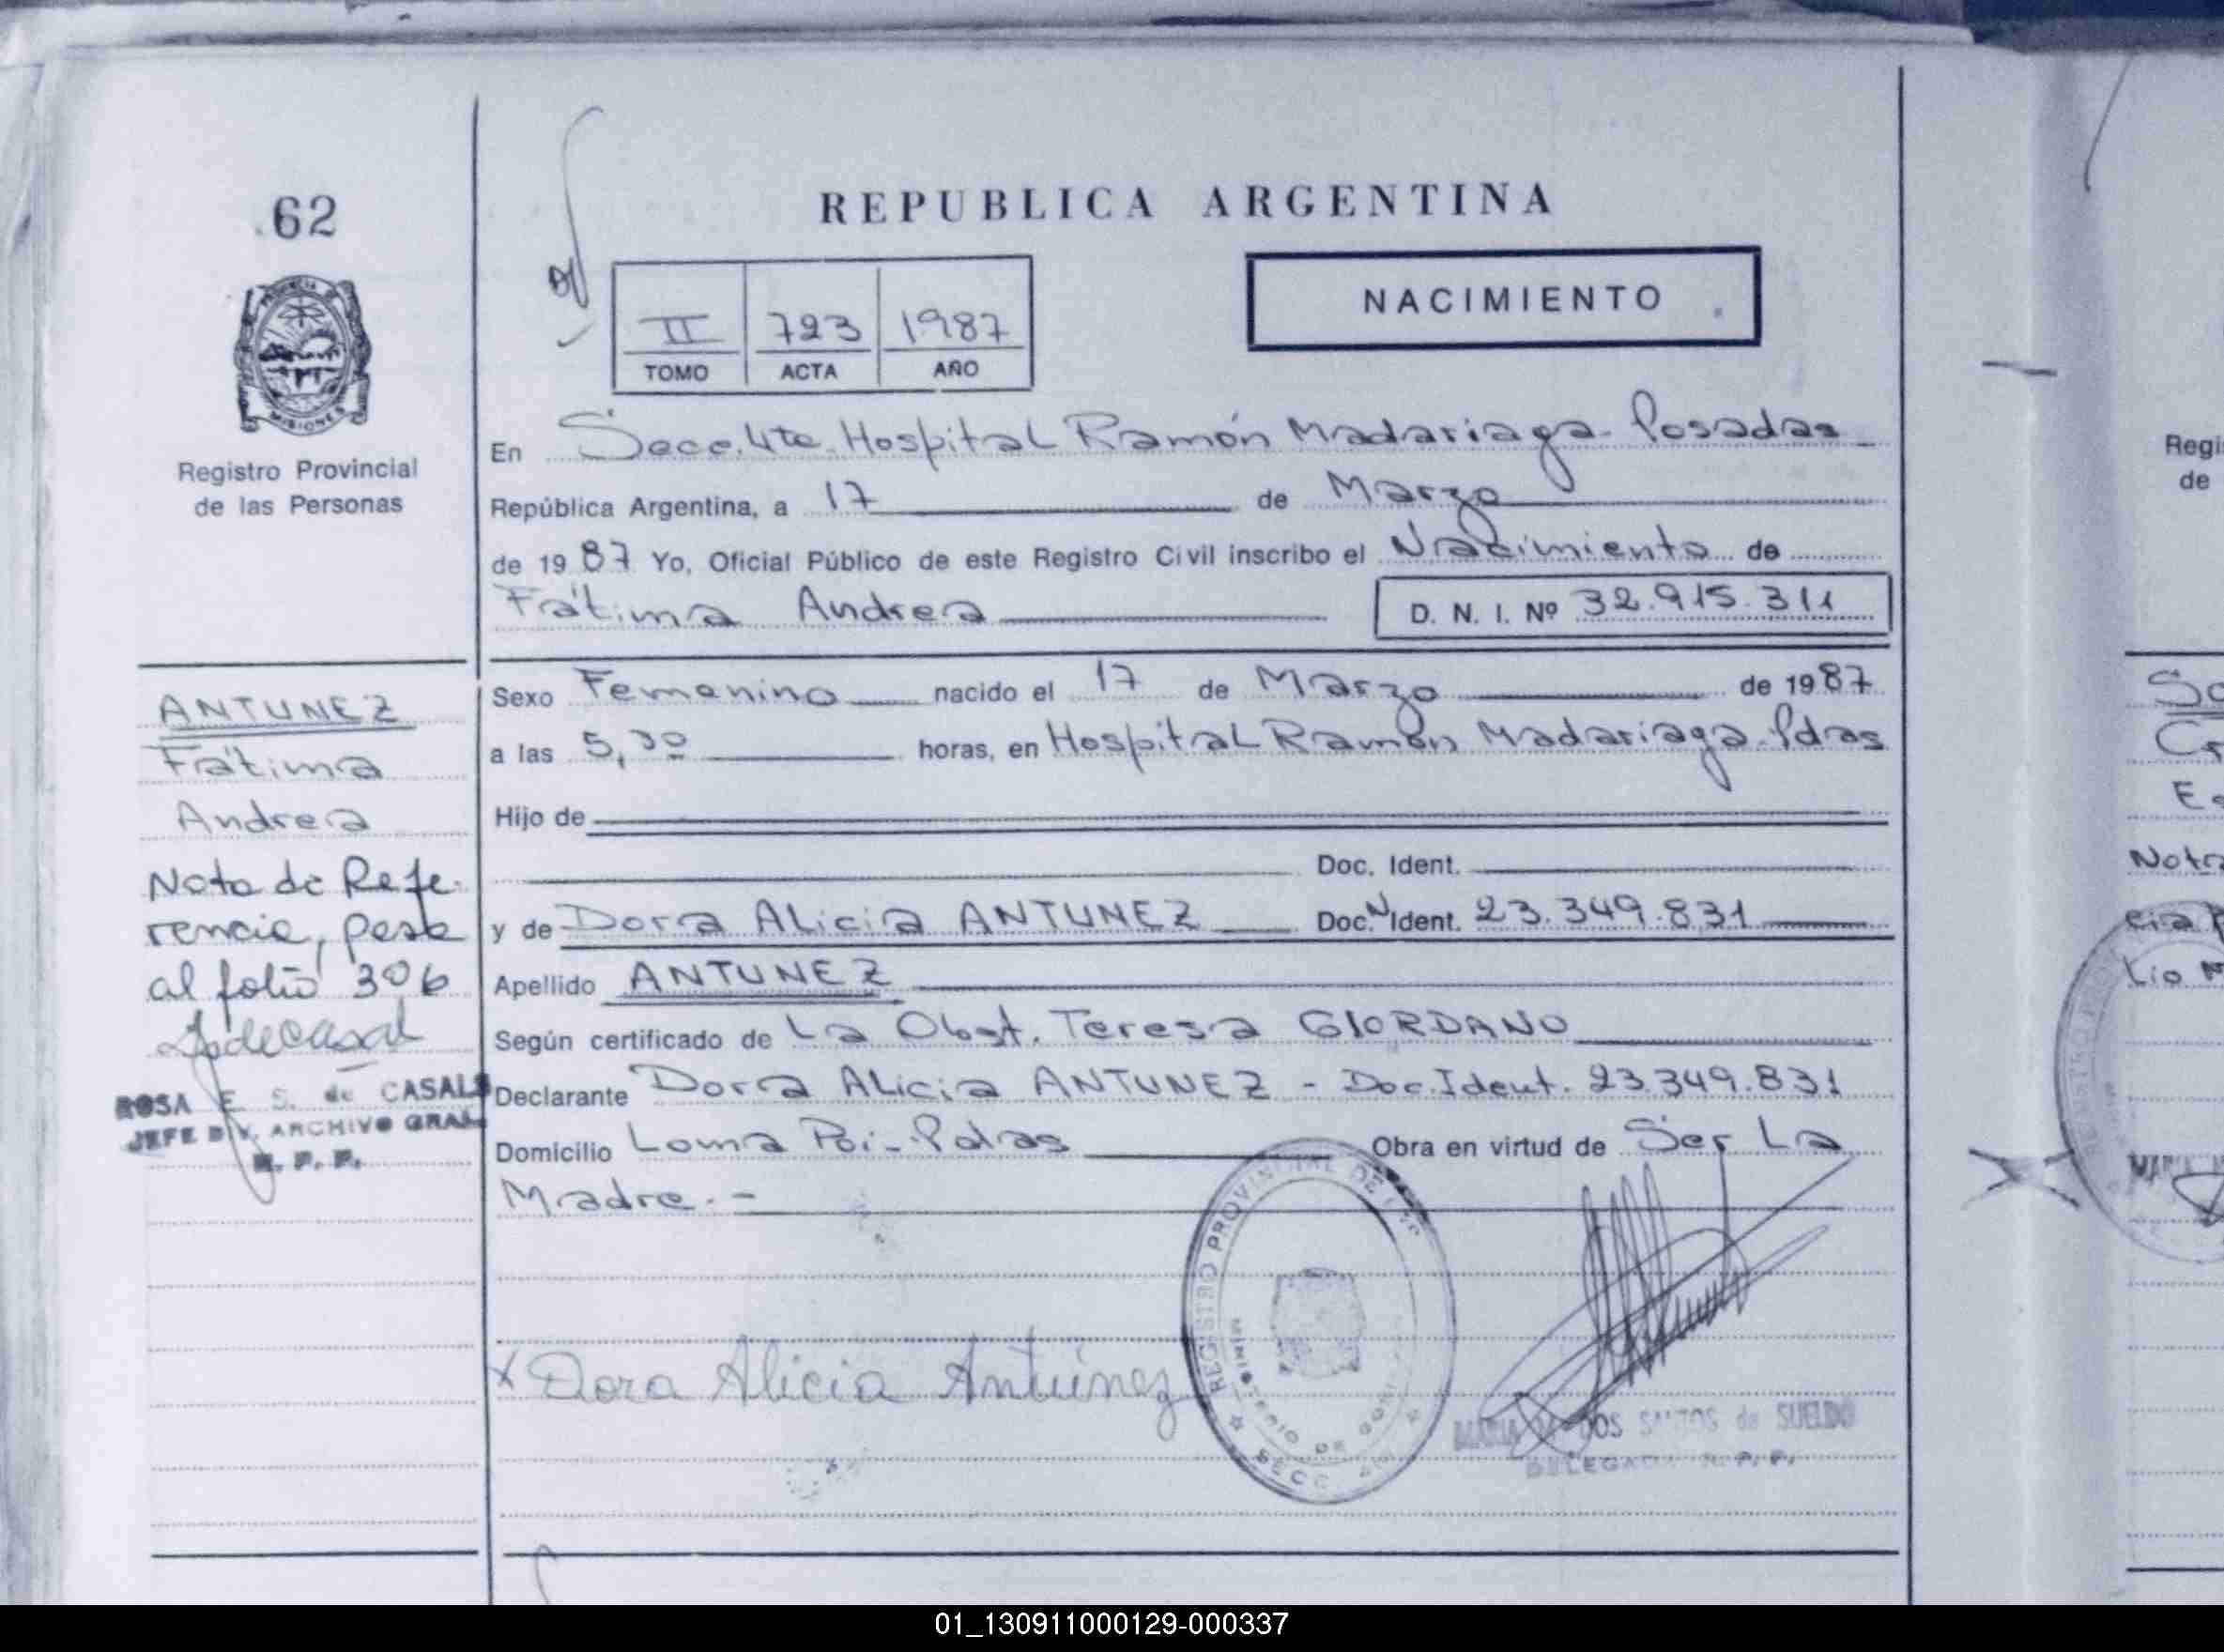 62
REPUBLICA ARGENTINA
II 723 1987
TOMO ACTA AÑO
NACIMIENTO
PROVINCIA DE
MISIONES
Registro Provincial
de las Personas
En Secc. 4ta. Hospital Ramón Madariaga - Posadas
República Argentina, a 17 de Marzo
de 1987 Yo, Oficial Público de este Registro Civil inscribo el Nacimiento de
Fátima Andrea D. N. I. Nº 32.915.311
ANTUNEZ
Fátima
Andrea
Nota de Refe-
rencia, pasa
al folio 306
ROSA E. S. de CASALS
JEFE DIV. ARCHIVO GRAL.
R. P. P.
Sexo Femenino nacido el 17 de Marzo de 1987
a las 5,30 horas, en Hospital Ramón Madariaga - Pdas
Hijo de
Doc. Ident.
y de Dora Alicia ANTUNEZ Doc. N Ident. 23.349.831
Apellido ANTUNEZ
Según certificado de La Obst. Teresa GIORDANO
Declarante Dora Alicia ANTUNEZ - Doc. Ident. 23.349.831
Domicilio Loma Poi - Pdas Obra en virtud de Ser La
Madre. -
x Dora Alicia Antúnez
REGISTRO PROVINCIAL DE LAS
MINISTERIO DE GOBI
SECC. 4ta
MARIA M. DOS SANTOS de SUELDO
DELEGADA R. P. P.
Regi
de
So
Cr
Nota
cia
Lio M
MARIA
01_130911000129-000337